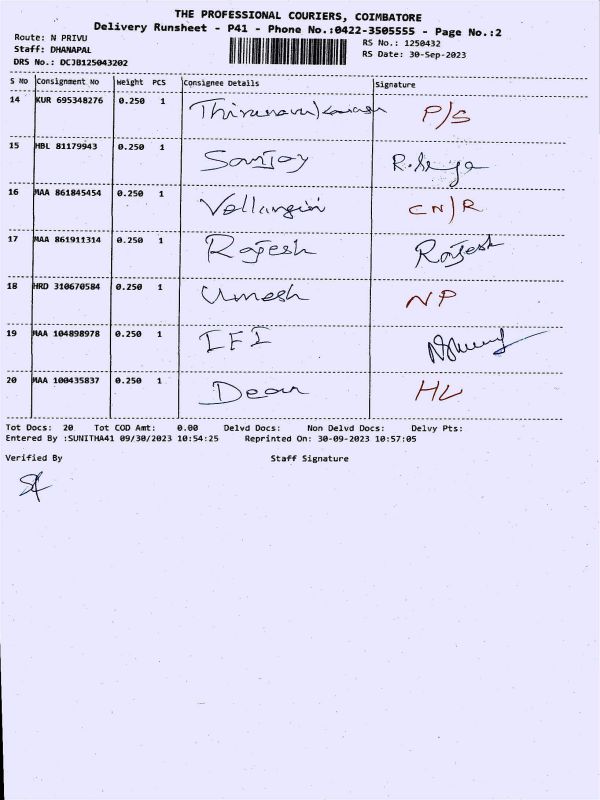 THE PROFESSIONAL COURIERS, COIMBATORE
Delivery Runsheet - P41 - Phone No.:0422-3505555 - Page No.:2
Route: N PRIVU
RS No.: 1250432
Staff: DHANAPAL
RS Date: 30-Sep-2023
DRS No.: DCJB125043202
S No Consignment No Weight PCS Consignee Details Signature
14 KUR 695348276 0.250 1 P/S
15 HBL 81179943 0.250 1 Sanjoy
16 MAA 861845454 0.250 1 CN/R
17 MAA 861911314 0.250 1 Rajesh Rajesh
18 HRD 310670584 0.250 1 Umesh NP
19 MAA 104898978 0.250 1 IFI
20 MAA 100435837 0.250 1 Dean HL
Tot Docs: 20 Tot COD Amt: 0.00 Delvd Docs: Non Delvd Docs: Delvy Pts:
Entered By :SUNITHA41 09/30/2023 10:54:25 Reprinted On: 30-09-2023 10:57:05
Verified By Staff Signature